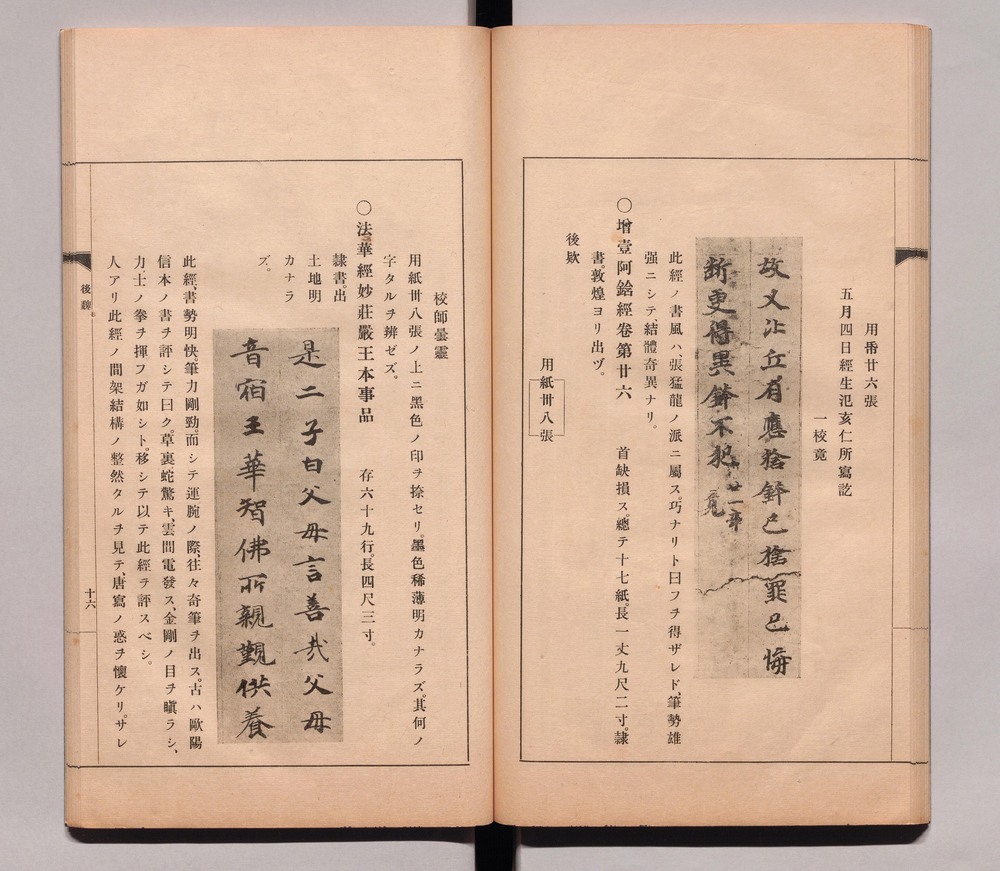 用帋廿六張
五月四日經生氾亥仁所寫訖
一校竟
故又比丘有應捨鉢已捨罪已悔
斷更得異鉢不犯
此經ノ書風ハ、張猛龍ノ派ニ屬ス。巧ナリト曰フヲ得ザレド、筆勢雄
强ニシテ、結體奇異ナリ。
〇增壹阿鋡經卷第廿六 首缺損ス。總テ十七紙。長一丈九尺二寸。隷
書。敦煌ヨリ出ヅ。
後欵
用紙卅八張
校師曇靈
用紙卅八張ノ上ニ黑色ノ印ヲ捺セリ。墨色稀薄明カナラズ。其何ノ
字タルヲ辨ゼズ。
〇法華經妙莊嚴王本事品 存六十九行。長四尺三寸。
隷書。出
土地明
カナラ
ズ。
是二子白父母言善哉父母
音宿王華智佛所親覲供養
此經、書勢明快。筆力剛勁。而シテ運腕ノ際、往々奇筆ヲ出ス。古ハ歐陽
信本ノ書ヲ評シテ曰ク。草裏蛇驚キ、雲間電發ス、金剛ノ目ヲ瞋ラシ、
力士ノ拳ヲ揮フガ如シト。移シテ以テ此經ヲ評スベシ。
人アリ此經ノ間架結構ノ整然タルヲ見テ、唐寫ノ惑ヲ懷ケリ。サレ
後魏
十六